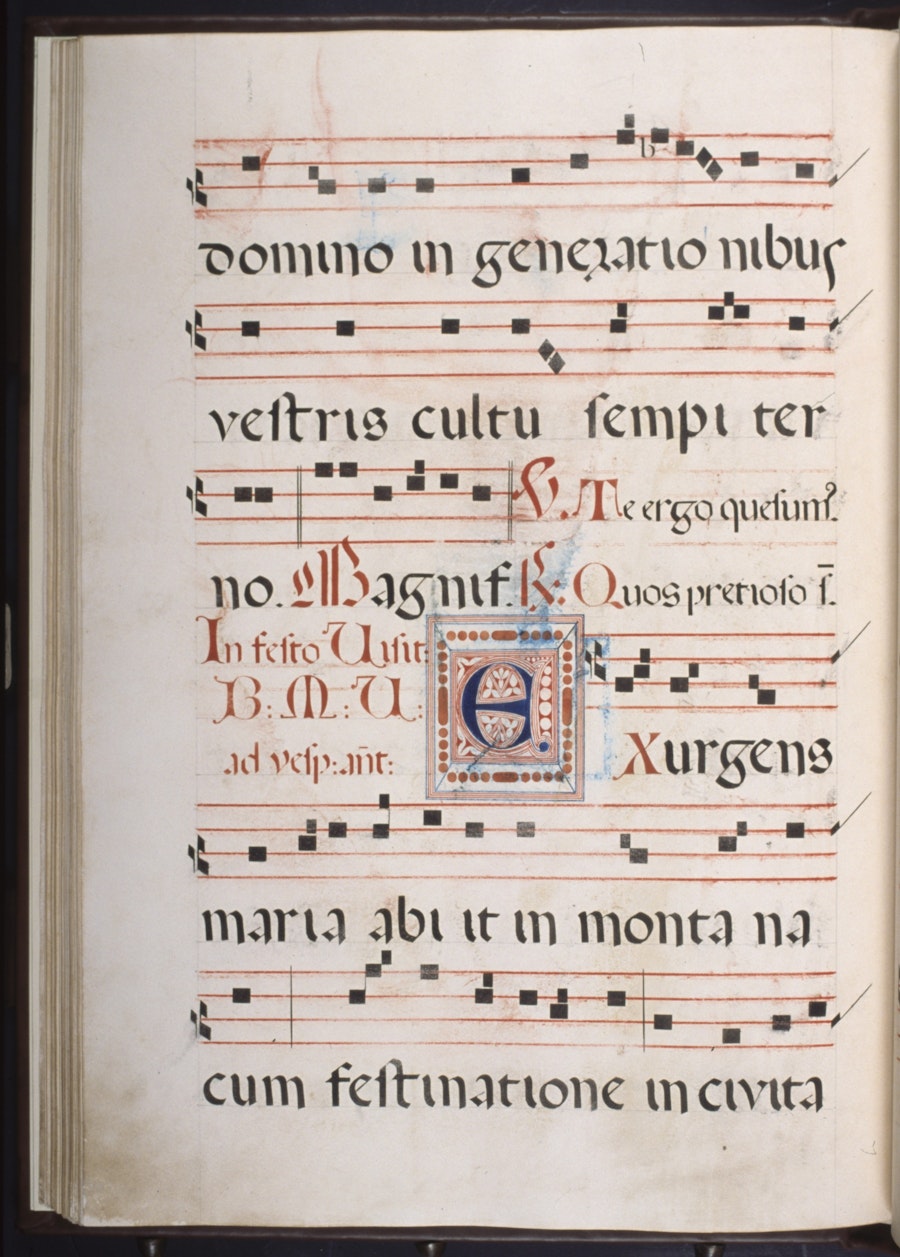 domino in generatio nibus
veſtris cultu ſempi ter
V. Te ergo queſumꝰ.
no. Magnif. R: Quos pretioſo ſ̄.
In feſto Uiſit:
B: M: U:
ad veſp: añt:
EXurgens
maria abi it in monta na
cum feſtinatione in civita